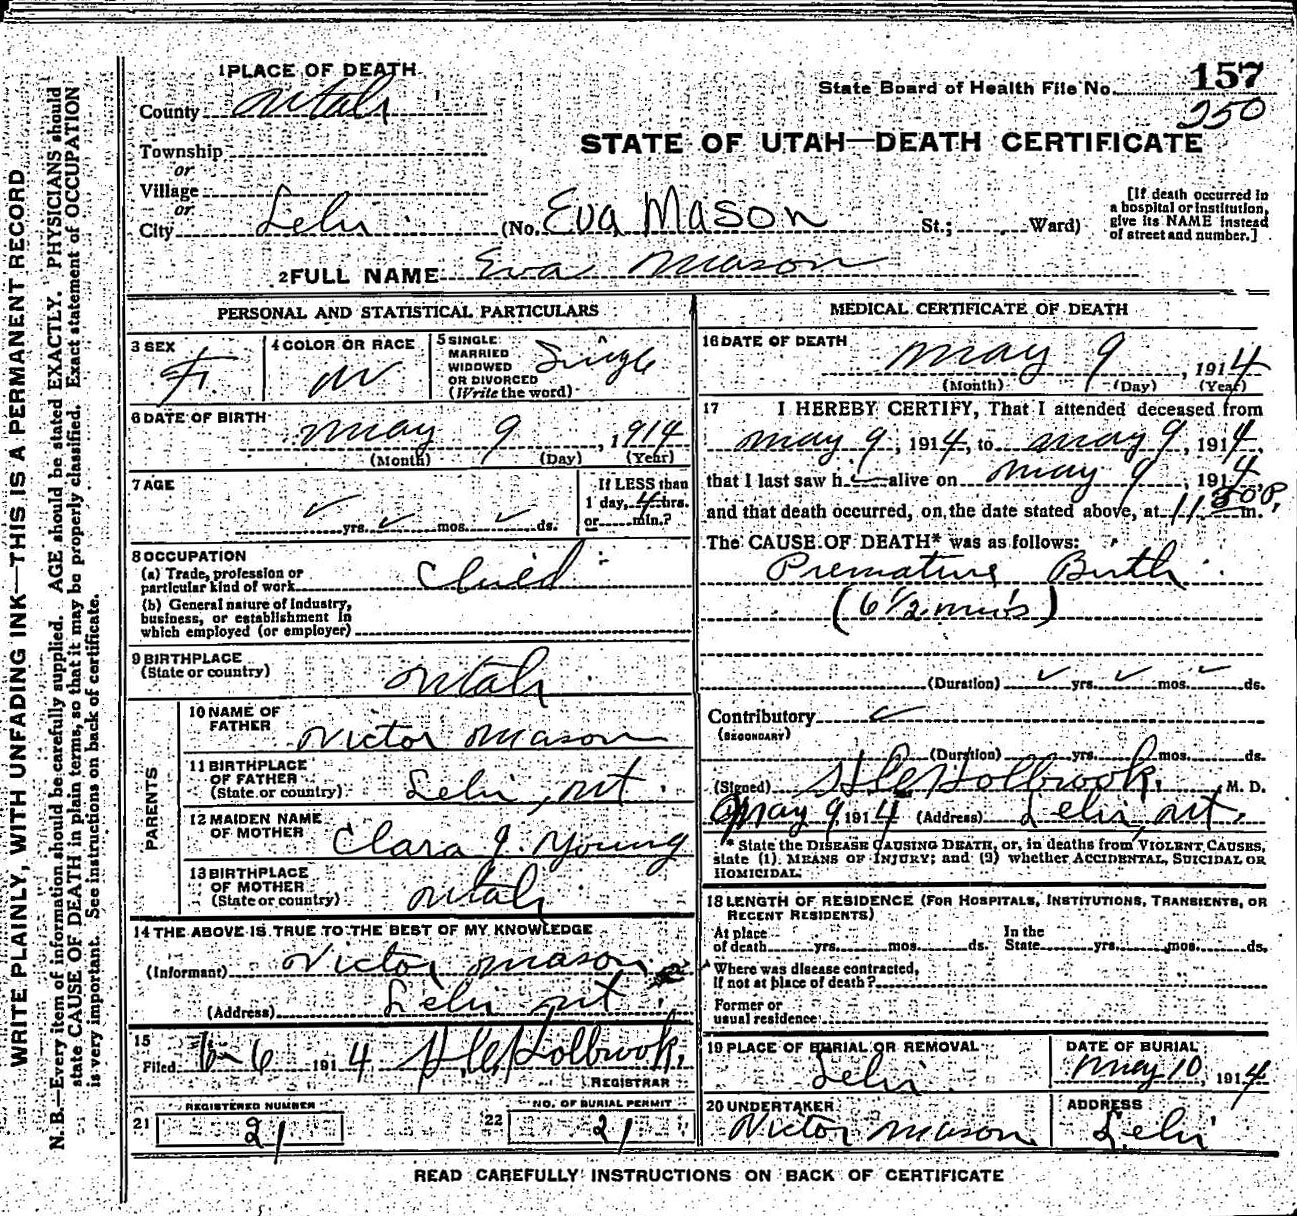 1 PLACE OF DEATH
County Utah
Township
or
Village
or
City Lehi (No. Eva Mason St.; Ward)
State Board of Health File No. 157
250
STATE OF UTAH—DEATH CERTIFICATE
[If death occurred in
a hospital or institution,
give its NAME instead
of street and number.]
2 FULL NAME Eva Mason
PERSONAL AND STATISTICAL PARTICULARS
3 SEX
F.
4 COLOR OR RACE
W
5 SINGLE
MARRIED
WIDOWED
OR DIVORCED
(Write the word)
Single
6 DATE OF BIRTH
May 9, 1914
(Month) (Day) (Year)
7 AGE
yrs. mos. ds.
If LESS than
1 day, 4 hrs.
or min.?
8 OCCUPATION
(a) Trade, profession or
particular kind of work Child
(b) General nature of Industry,
business, or establishment in
which employed (or employer)
9 BIRTHPLACE
(State or country)
Utah
PARENTS
10 NAME OF
FATHER
Victor Mason
11 BIRTHPLACE
OF FATHER
(State or country)
Lehi, Ut
12 MAIDEN NAME
OF MOTHER
Clara J. Young
13 BIRTHPLACE
OF MOTHER
(State or country)
Utah
14 THE ABOVE IS TRUE TO THE BEST OF MY KNOWLEDGE
(Informant) Victor Mason
(Address) Lehi Ut
15
Filed 6-6 1914 H. C. Holbrook.
REGISTRAR
21 REGISTERED NUMBER
21
22 NO. OF BURIAL PERMIT
21
MEDICAL CERTIFICATE OF DEATH
16 DATE OF DEATH
May 9, 1914
(Month) (Day) (Year)
17 I HEREBY CERTIFY, That I attended deceased from
May 9, 1914, to May 9, 1914,
that I last saw h alive on May 9, 1914
and that death occurred, on the date stated above, at 11 30 P. m.
The CAUSE OF DEATH* was as follows:
Premature Birth
(6 1/2 mos)
(Duration) yrs. mos. ds.
Contributory
(SECONDARY)
(Duration) yrs. mos. ds.
(Signed) H. C. Holbrook, M. D.
May 9, 1914 (Address) Lehi, Ut.
* State the DISEASE CAUSING DEATH, or, in deaths from VIOLENT CAUSES,
state (1) MEANS OF INJURY; and (2) whether ACCIDENTAL, SUICIDAL OR
HOMICIDAL.
18 LENGTH OF RESIDENCE (FOR HOSPITALS, INSTITUTIONS, TRANSIENTS, OR
RECENT RESIDENTS)
At place
of death yrs. mos. ds.
In the
State yrs. mos. ds.
Where was disease contracted,
If not at place of death?
Former or
usual residence
19 PLACE OF BURIAL OR REMOVAL
Lehi
DATE OF BURIAL
May 10, 1914
20 UNDERTAKER
Victor Mason
ADDRESS
Lehi
READ CAREFULLY INSTRUCTIONS ON BACK OF CERTIFICATE
WRITE PLAINLY, WITH UNFADING INK—THIS IS A PERMANENT RECORD
N. B.—Every item of information should be carefully supplied. AGE should be stated EXACTLY. PHYSICIANS should
state CAUSE OF DEATH in plain terms, so that it may be properly classified. Exact statement of OCCUPATION
is very important. See instructions on back of certificate.